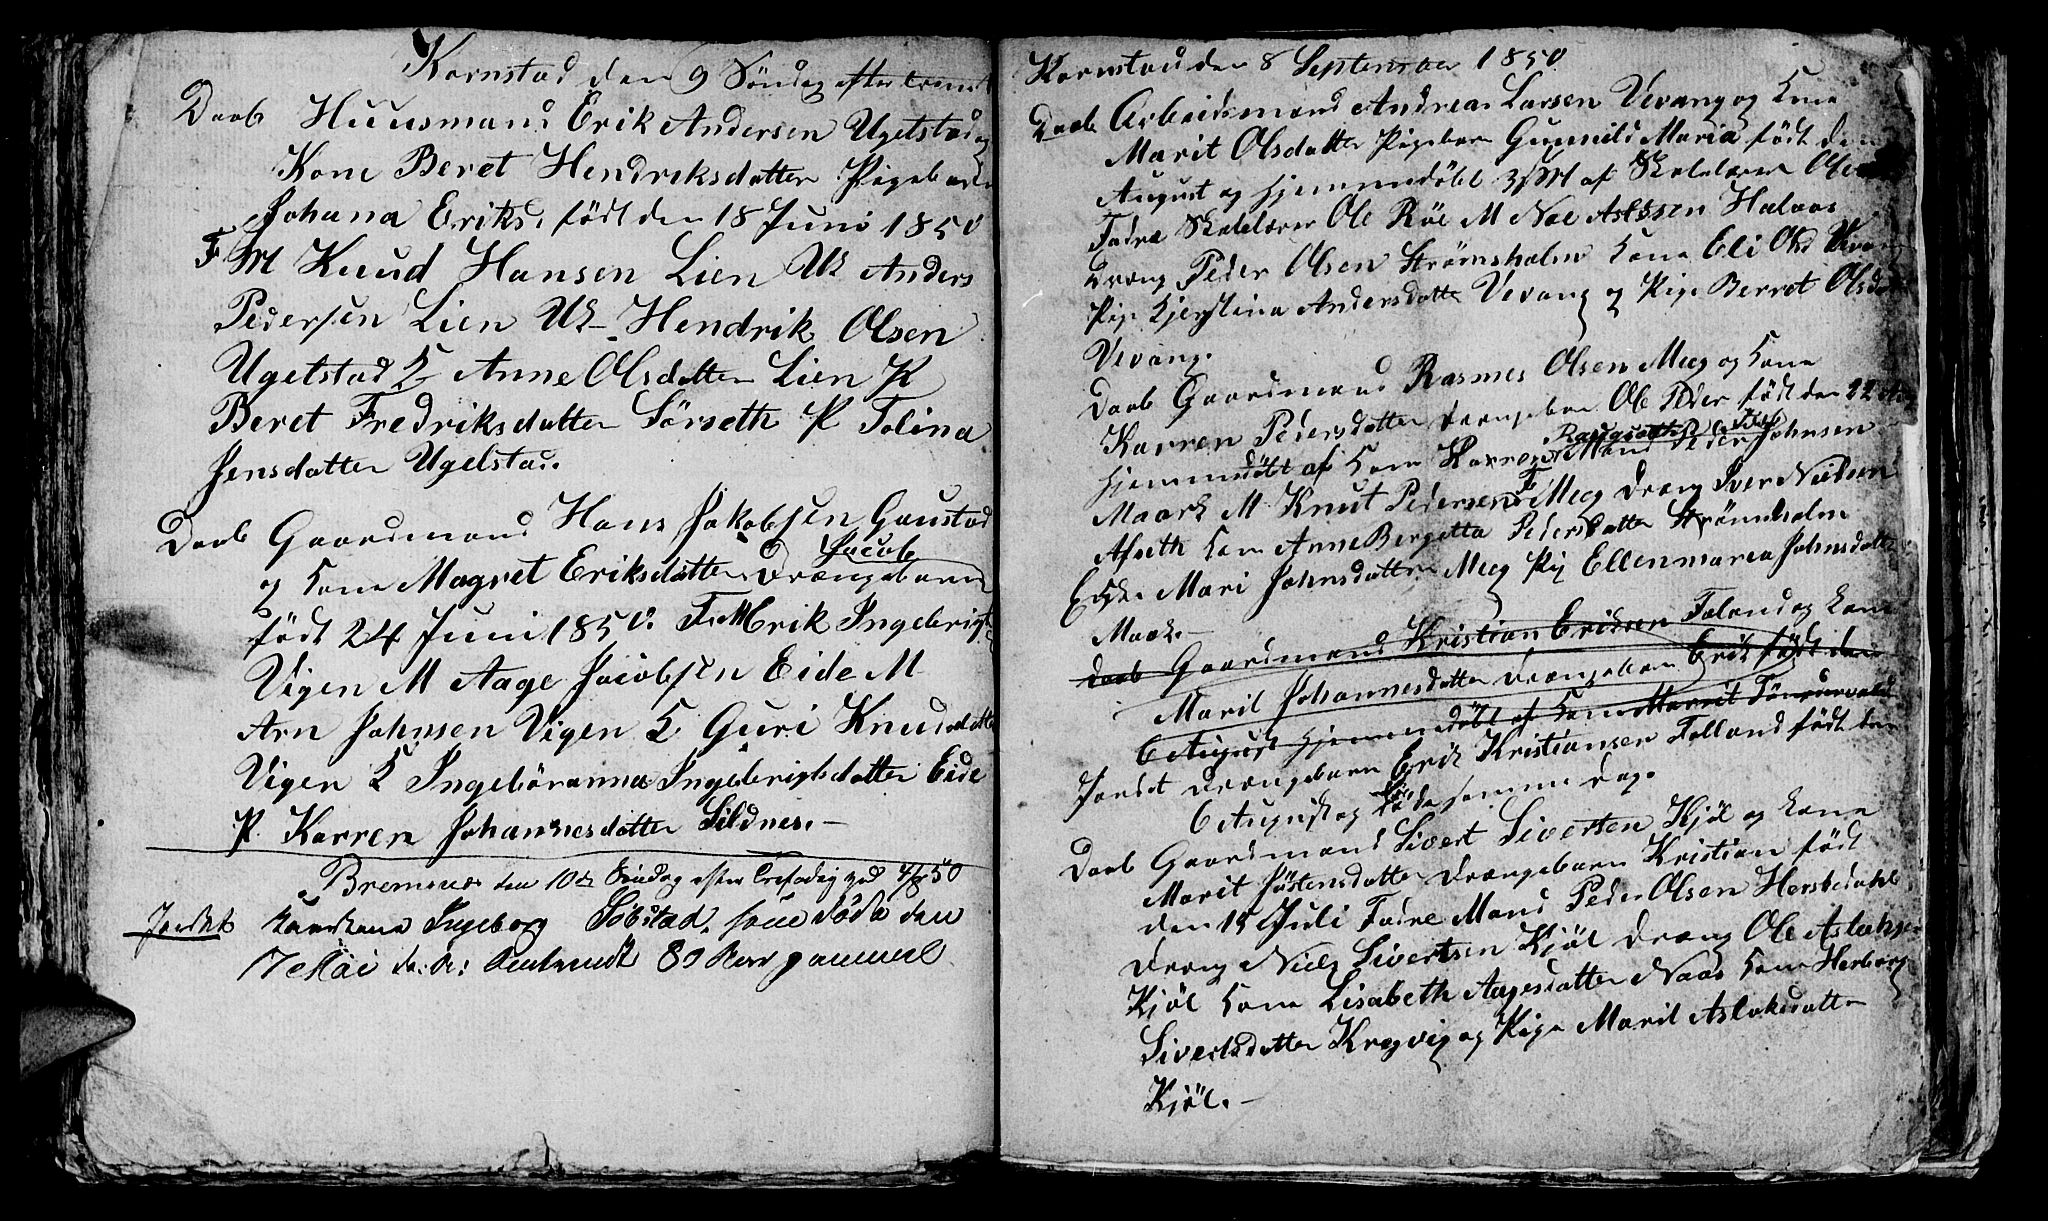 Kornstad den 9 Söndag efter Trenit
Daab Huusmand Erik Andersen Ugelstad og
Kone Beret Hendriksdatter Pigebarn
Johana Eriks. födt den 18 Juni 1850
F M Knud Hansen Lien UK Anders
Pedersen Lien UK Hendrik Olsen
Ugelstad K Anne Olsdatter Lien K
Beret Fredriksdatter Sörseth P Tolina
Jensdatter Ugelstad.
Daab Gaardmand Hans Jakobsen Gaustad
Jacob
og Kone Magret Eriksdatter Drængebarn
födt 24 Juni 1850. F. M Erik Ingebrigts
Vigen M Aage Jacobsen Eide M
Arn Johnsen Vigen K Guri Knudsdatter
Vigen K Ingebör anna Ingebrigtsdatter Eide
P. Karren Johannesdatter Sildnes.
Bremsnes den 10de Söndag efter Trefoldig
Jordet Ingeborg Sobstad, som döde den
17 Mai 80 Aar gammel
Kornstad den 8 September 1850
Daab Arbeidsmand Andreas Larsen Vevang og Kone
Marit Olsdatter Pigebarn Gunnild Maria födt den
August og hjemmedöbt af Skolelærer Ole
Fadre Skolelærer Ole Röe M Noe Aslessen Halaas
Dræng Peder Olsen Strömsholm Kone Eli Olsd Vevang
Pige Kjerstina Andersdatter Vevang og Pige Berret Olsdatter
Vevang.
Daab Gaardmand Rasmes Olsen Meeg og Kone
Karren Pedersdatter Drængebarn Ole Peder födt den 22 Aug
hjemmedöbt af Kone Karren Mand Peder Johnsen
Maark M Knut Pedersen Meeg Dræng Iver Nielsen
Afseth Kone Anne Bergetta Pedersdatter Strömsholm
Mari Johnsdatter Meeg Pig Ellenmarea Johnsdatter
Maark.
Daab Gaardmand Kristian Eriksen Foland og Kone
Marit Johannesdatter Drængebarn Erik födt den
6 August hjemmedöbt af Kone Marrit
Jordet Drængebarn Erik Kristiansen Folland födt den
6 August og döde samme Dag.
Daab Gaardmand Sivert Sivertsen Kjöl og Kone
Marit Jöstensdatter Drængebarn Kristian födt
den 15 Juli Fadre Mand Peder Olsen Hersbedahl
Dræng Niels Sivertsen Kjöl Dræng Ole Aslaksen
Kjöl Kone Lisabeth Aagesdatter Naas Kone Herborg
Sivertsdatter Kragvig og Pige Marit Aslaksdatter
Kjöl.